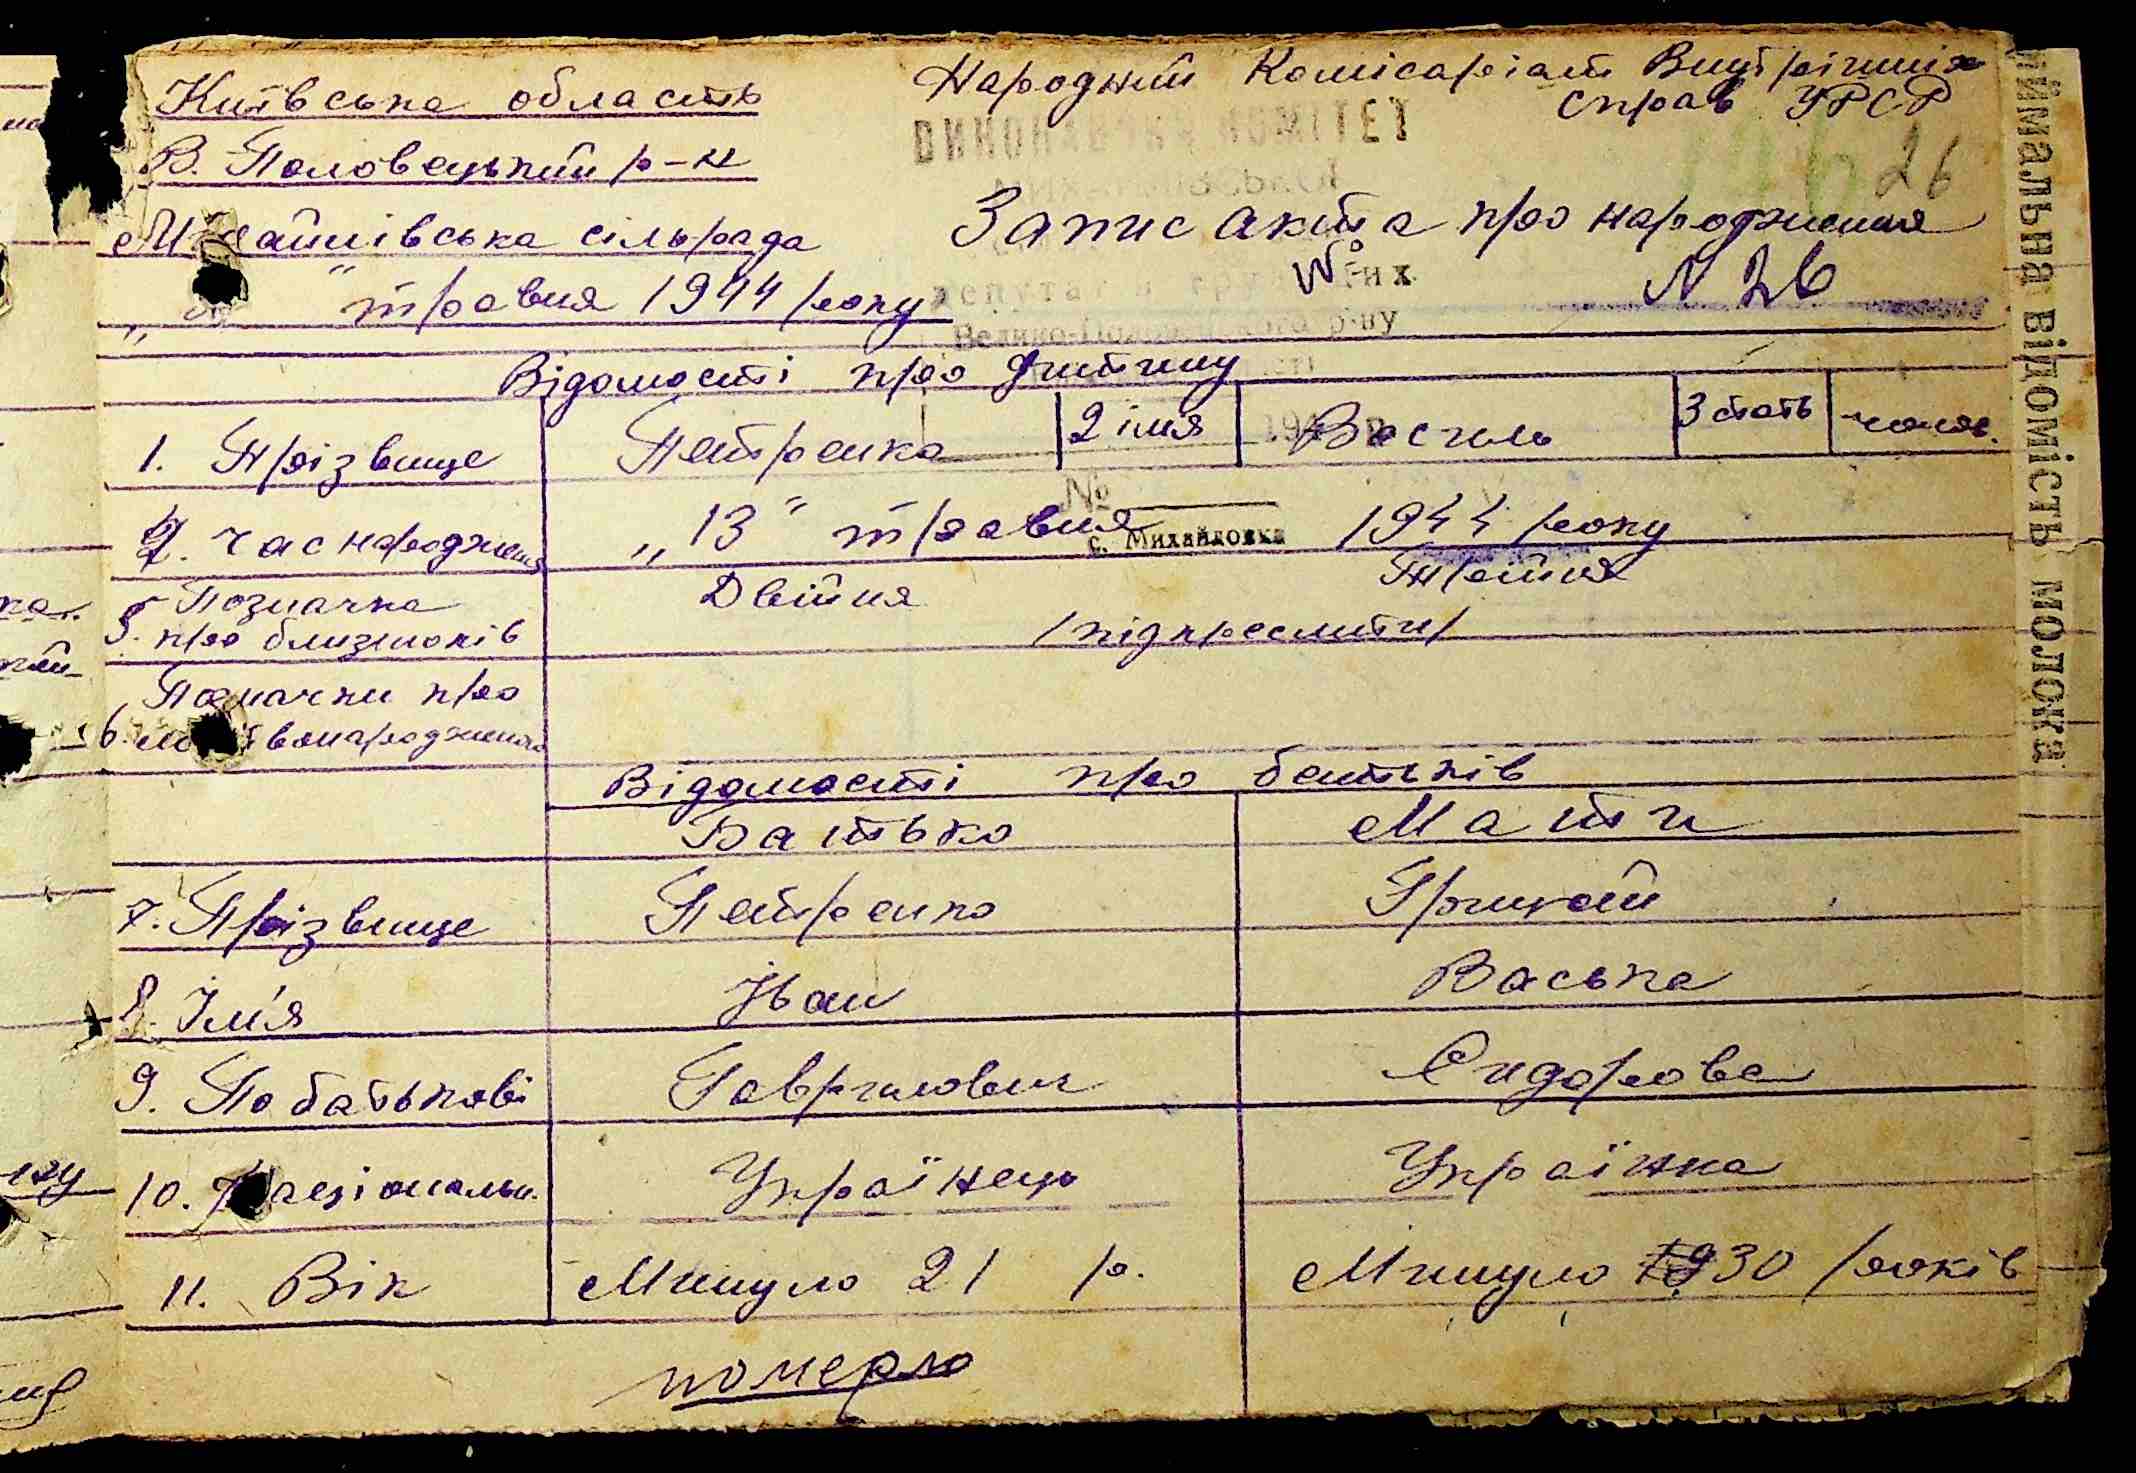 Київська область
Народний Комісаріат Внутрішніх
справ УРСР
В. Половецький р-н
ВИКОНАВЧИЙ КОМІТЕТ
26
Михайлівська сільрада
Запис акта про народження
№
N 26
" травня 1944 року
Велико-Половецького р-ну
Відомості про дитину
1. Прізвище Петренко 2 імя Василь 3 стать чолов.
№
4. Час народження „13" травня 1944 року
с. Михайловка
5. Позначка про близнюків Двійня Трійня
/підкреслити/
6. Позначки про мертвонародженого
Відомості про батьків
Батько Мати
7. Прізвище Петренко Грицай
8. Ім'я Іван Васька
9. По батькові Гаврилович Сидорова
10. Національн. Українець Українка
11. Вік Минуло 21 р. Минуло 30 років
померло
ВІДОМІСТЬ МОЛОКА